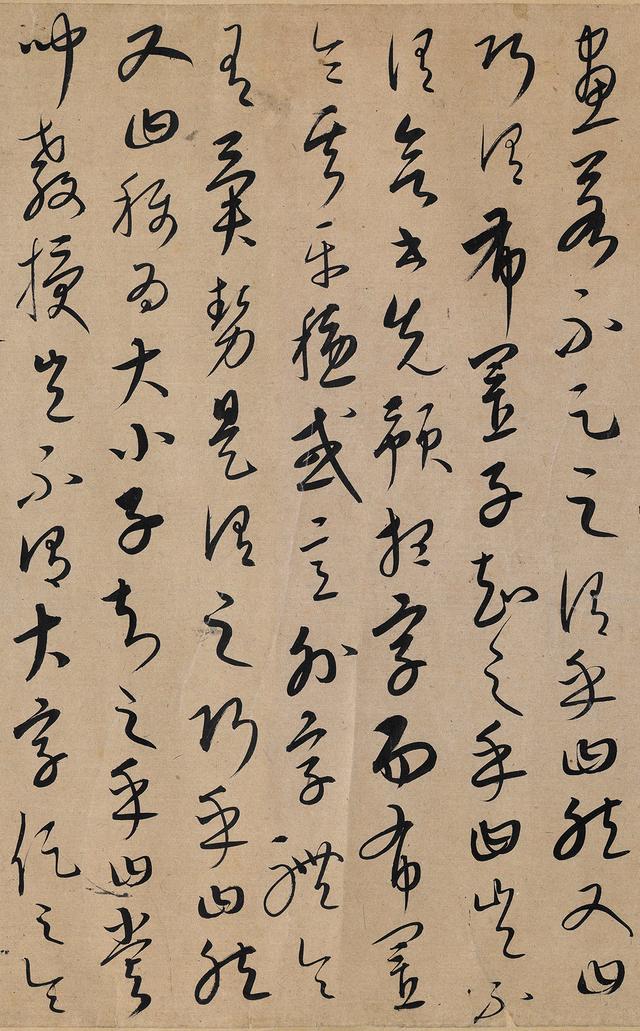 畫若不足之謂乎曰然又曰
巧謂布置子知之乎曰豈不
謂欲書先預想字而布置
令其平穩或意外字體令
有異勢是謂之巧乎曰然
又曰稱為大小子知之乎曰嘗
叩教授豈不謂大字促之令